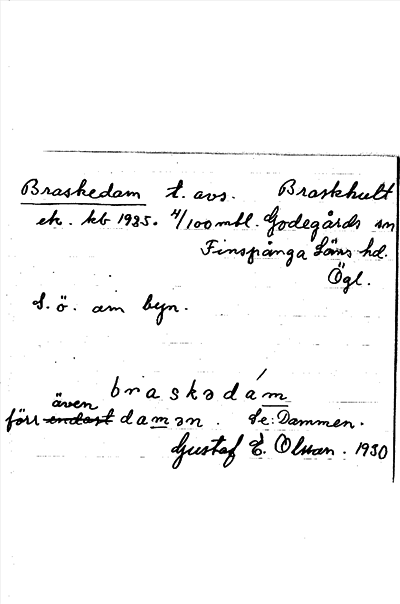 Braskedam t. avs. Braskhult
ek. kb 1935. 4/100 mtl. Godegårds sn
Finspånga Läns hd.
Ögl.
S. ö. om byn.
braskədám
även
förr endast damən. Se: Dammen.
Gustaf E. Olsson. 1930